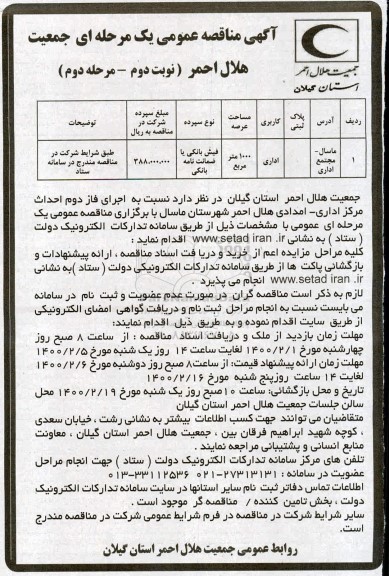 آگهی مناقصه عمومی یک مرحله ای جمعیت
هلال احمر ( نوبت دوم – مرحله دوم)
جمعیت هلال احمر
استان گیلان
ردیف آدرس پلاک ثبتی کاربری مساحت عرصه نوع سپرده مبلغ سپرده شرکت در مناقصه به ریال توضیحات
۱ ماسال- مجتمع اداری اداری ۱۰۰۰ متر مربع فیش بانکی یا ضمانت نامه بانکی ۳۸۸،۰۰۰،۰۰۰ طبق شرایط شرکت در مناقصه مندرج در سامانه ستاد
جمعیت هلال احمر استان گیلان در نظر دارد نسبت به اجرای فاز دوم احداث
مرکز اداری– امدادی هلال احمر شهرستان ماسال با برگزاری مناقصه عمومی یک
مرحله ای عمومی با مشخصات ذیل از طریق سامانه تدارکات الکترونیک دولت
( ستاد ) به نشانی www.setad iran .ir اقدام نماید :
کلیه مراحل مزایده اعم از خرید و دریافت اسناد مناقصه ، ارائه پیشنهادات و
بازگشایی پاکت ها از طریق سامانه تدارکات الکترونیکی دولت ( ستاد ) به نشانی
www.setad iran .ir انجام می پذیرد .
لازم به ذکر است مناقصه گران در صورت عدم عضویت و ثبت نام در سامانه
می بایست نسبت به انجام مراحل ثبت نام و دریافت گواهی امضای الکترونیکی
از طریق سایت اقدام نموده و به طریق ذیل اقدام نمایند:
مهلت زمان بازدید از ملک و دریافت اسناد مناقصه : از ساعت ۸ صبح روز
چهارشنبه مورخ ۱۴۰۰/۲/۱ لغایت ساعت ۱۴ روز یک شنبه مورخ ۱۴۰۰/۲/۵
مهلت زمان ارائه پیشنهاد قیمت: از ساعت ۸ صبح روز دوشنبه مورخ ۱۴۰۰/۲/۶
لغایت ۱۴ ساعت روز پنج شنبه مورخ ۱۴۰۰/۲/۱۶
تاریخ و محل بازگشائی: ساعت ۱۰ صبح روز یک شنبه مورخ ۱۴۰۰/۲/۱۹ محل
سالن جلسات جمعیت هلال احمر استان گیلان
متقاضیان می توانند جهت کسب اطلاعات بیشتر به نشانی رشت ، خیابان سعدی
، کوچه شهید ابراهیم فرقان بین ، جمعیت هلال احمر استان گیلان ، معاونت
منابع انسانی و پشتیبانی مراجعه نمایند .
تلفن های مرکز سامانه تدارکات الکترونیک دولت ( ستاد ) جهت انجام مراحل
عضویت در سامانه : ۲۷۳۱۳۱۳۱-۰۲۱ ۳۳۱۱۲۵۳۶-۰۱۳
اطلاعات تماس دفاتر ثبت نام سایر استانها در سایت سامانه تدارکات الکترونیک
دولت ، بخش تامین کننده / مناقصه گر موجود است .
سایر شرایط شرکت در مناقصه در فرم شرایط عمومی شرکت در مناقصه مندرج
است.
روابط عمومی جمعیت هلال احمر استان گیلان